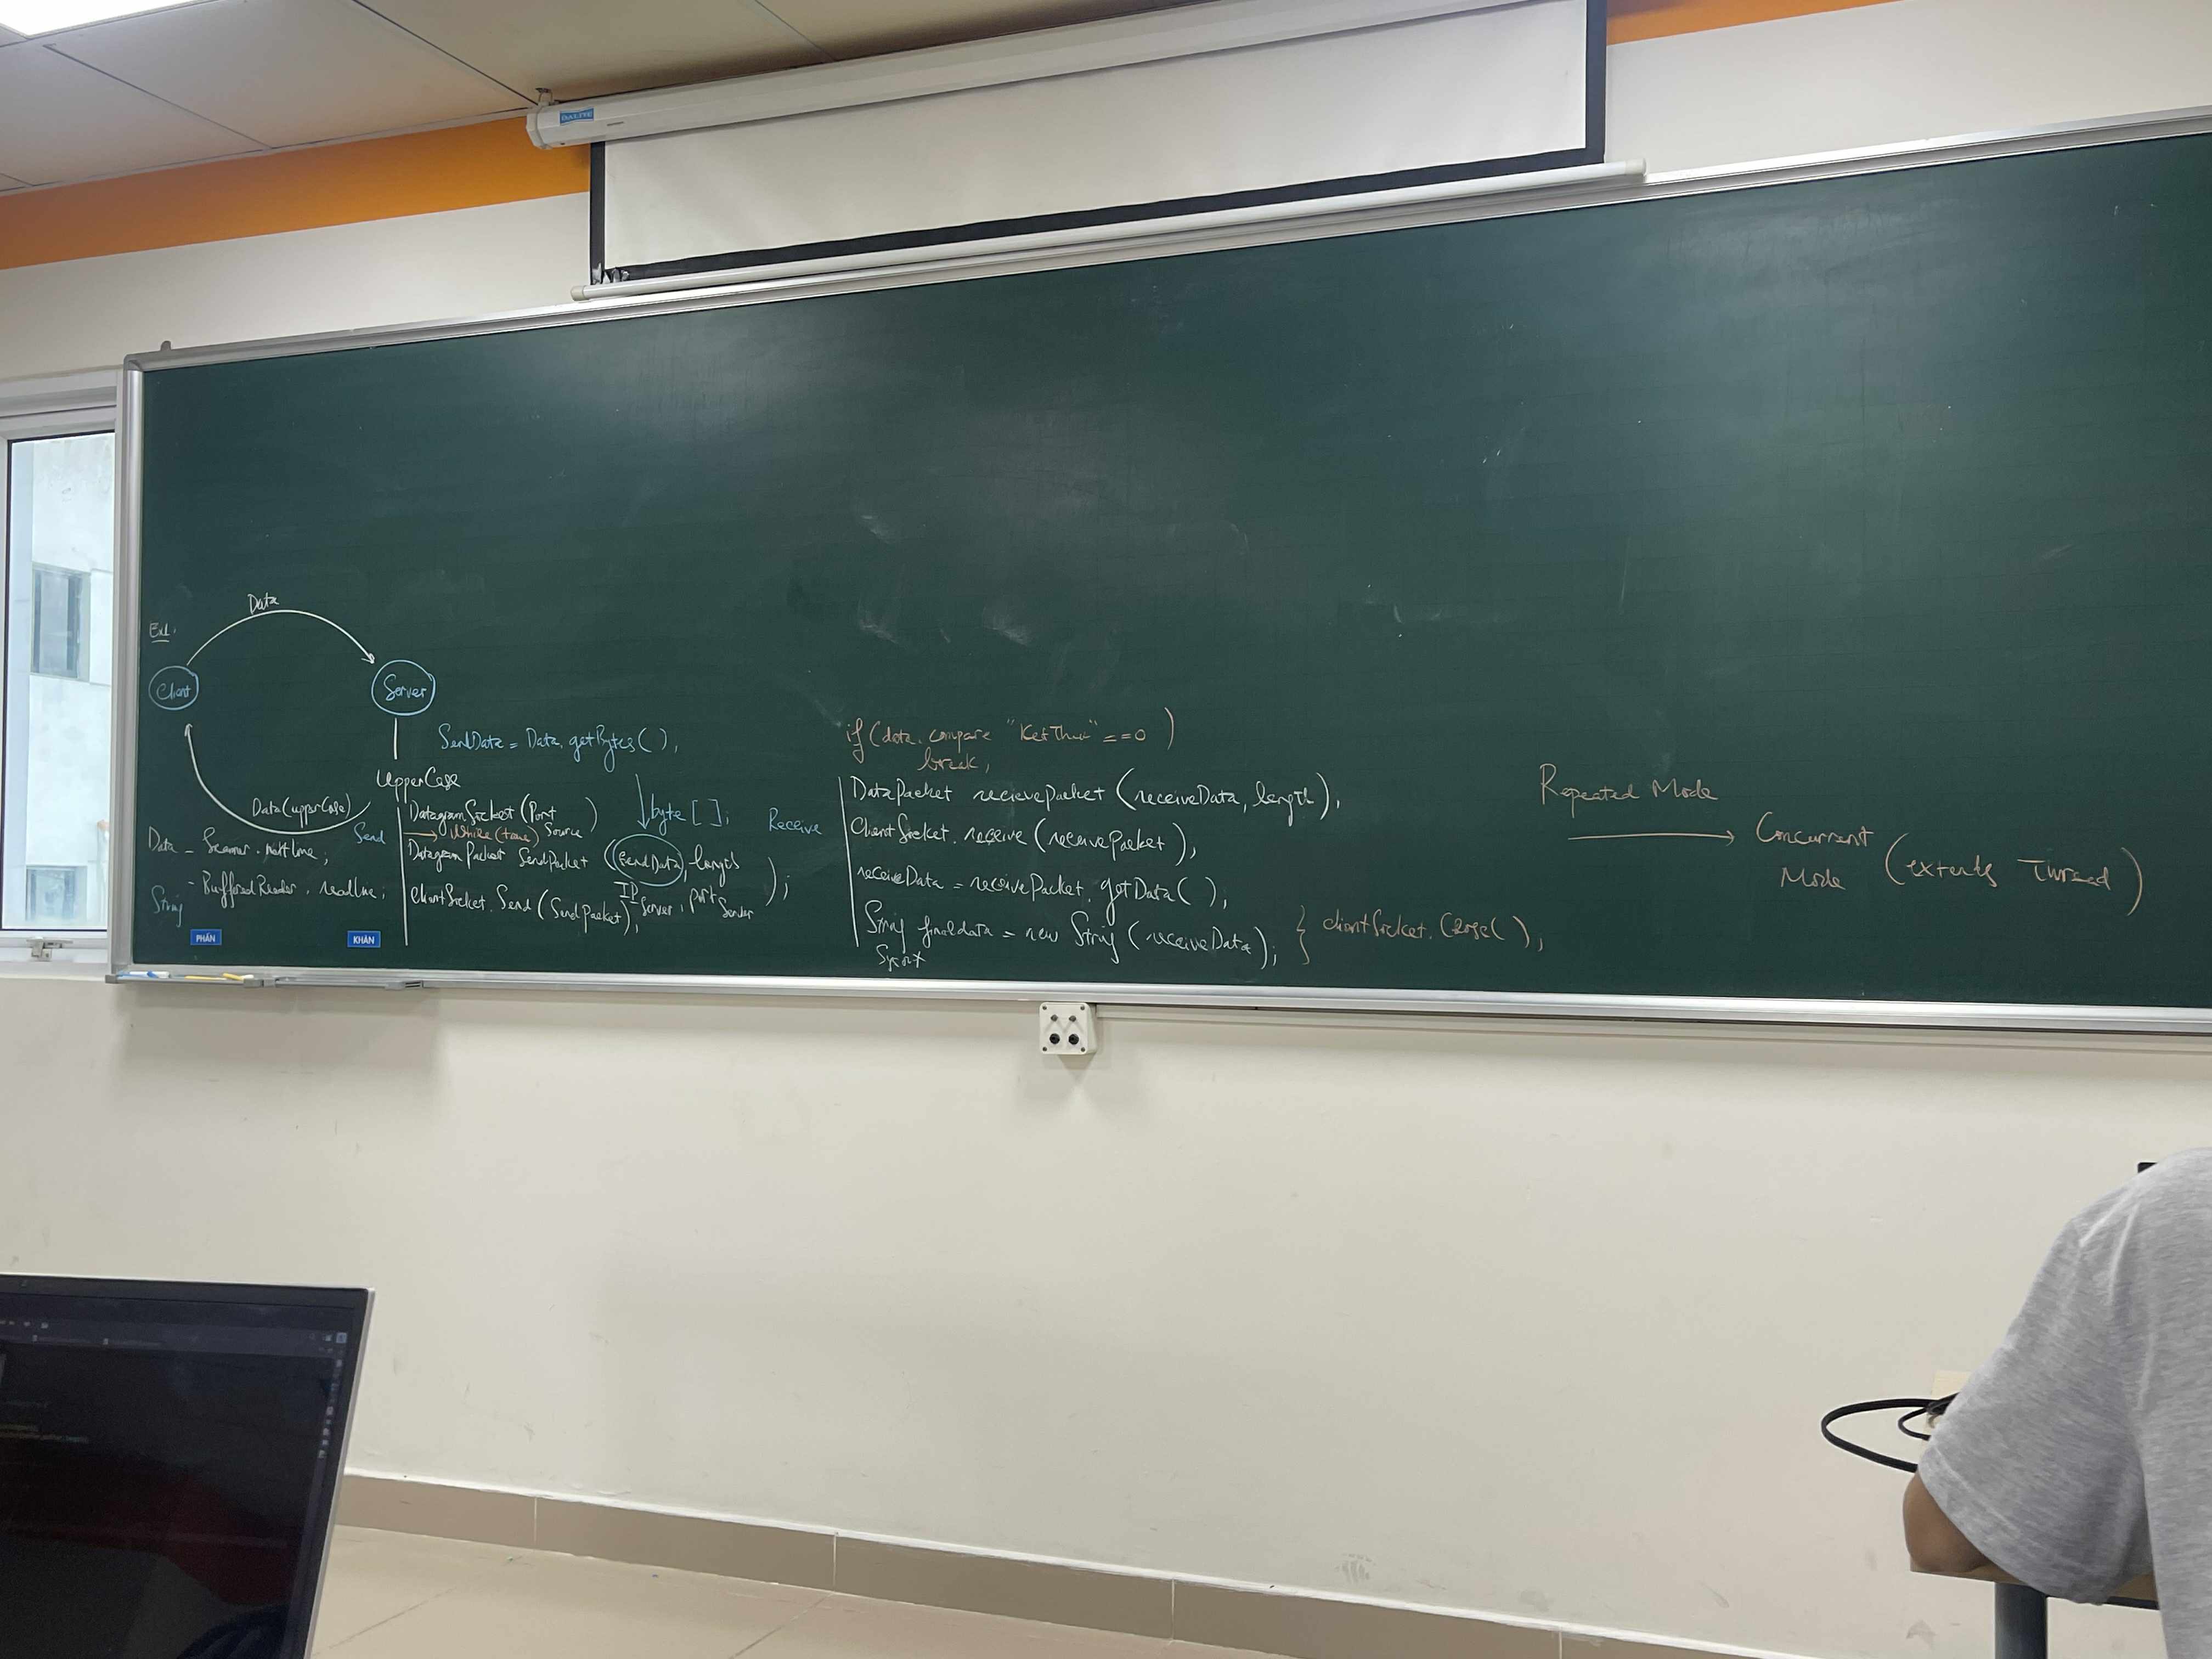 DALITE
Data
Ex1.
Client
Server
SendData = Data.getBytes( );
byte [ ];
UpperCase
Data(upperCase)
Data - Scanner.nextline;
- BufferedReader.readline;
String
Send
DatagramSocket (Port
Source )
→ While (true)
Datagram Packet SendPacket (SendData, length
IP Server, port Server );
clientSocket.Send (SendPacket);
PHẤN
KHĂN
if (data.compare "KetThuc" ==0 )
break;
Receive
DataPacket recievePacket (receiveData, length);
ClientSocket.receive (receivePacket);
receiveData = receivePacket.getData( );
String finaldata = new String (receiveData);
Sysout
} clientSocket.Close( );
Repeated Mode
Concurrent
Mode
(extends Thread)